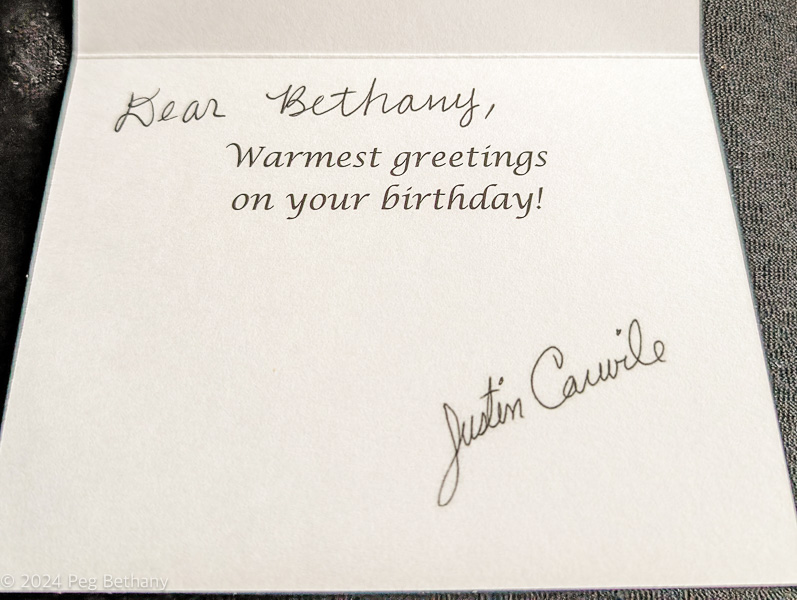 Dear Bethany,
Warmest greetings
on your birthday!
Justin Carwile
© 2024 Peg Bethany